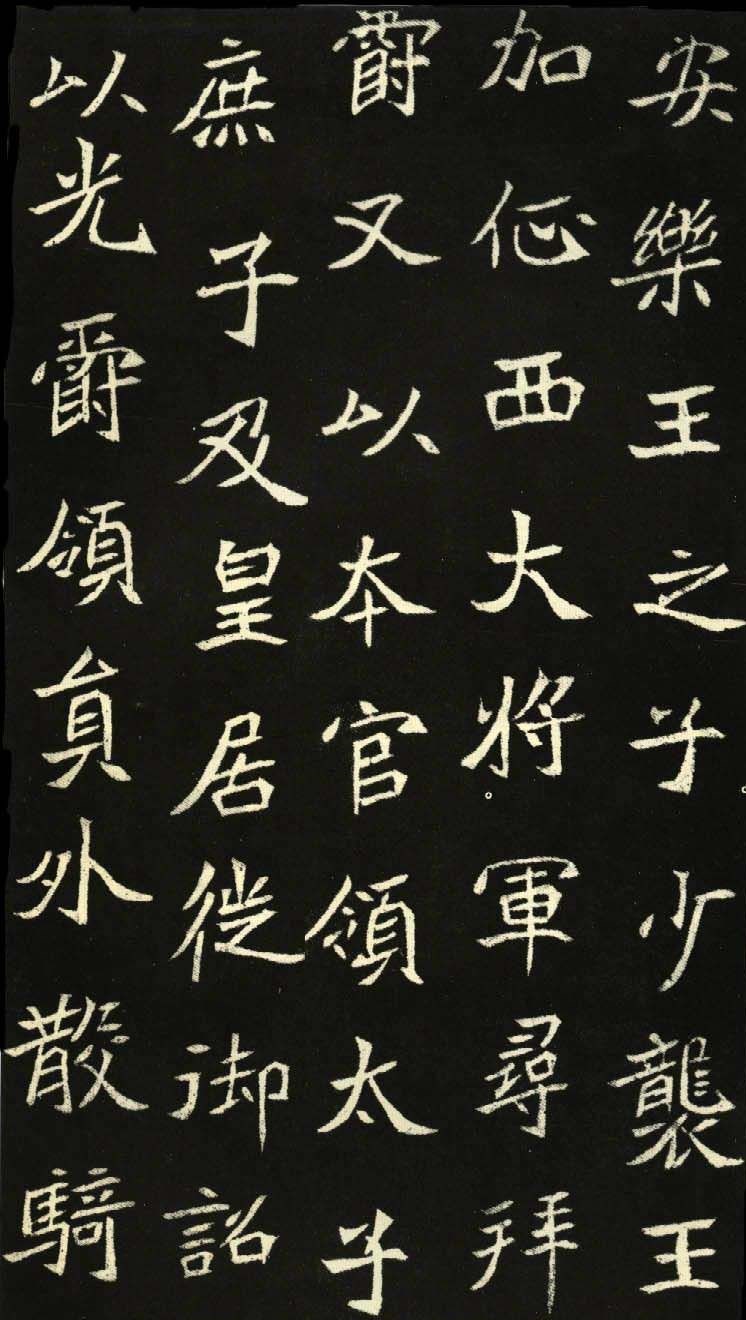 安樂王之子少襲王
加征西大將軍尋拜
爵又以本官領太子
庶子及皇居徙御詔
以光爵領員外散騎